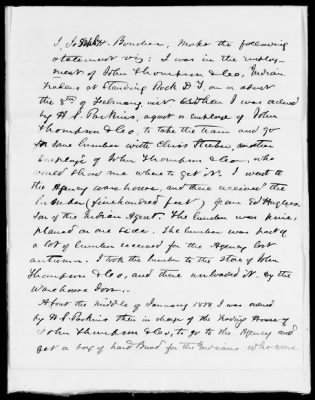 I, Joseph W. Boucher, make the following
statement viz: I was in the employ-
ment of John Thompson & Co, Indian
traders at Standing Rock D.T, on or about
the 8th of February, 1878 I was ordered
by H. S. Parkins, agent or employe of John
Thompson & Co, to take the team and go
for some lumber with Chris another
Employe of John Thompson & Co, who
would show me where to get it. I went to
the Agency warehouse, and there received the
lumber (five hundred feet) from Ed Hughes.
Son of the Indian Agent. The lumber was pine,
planed on one side. The lumber was part of
a lot of lumber received for the Agency last
autumn. I took the lumber to the store of John
Thompson & Co, and there unloaded it by the
Warehouse Door.
About the middle of January 1878 I was ordered
by H. S. Parkins then in charge of the trading House of
John Thompson & Co, to go to the Agency and
get a box of hard Bread for the Indians who were